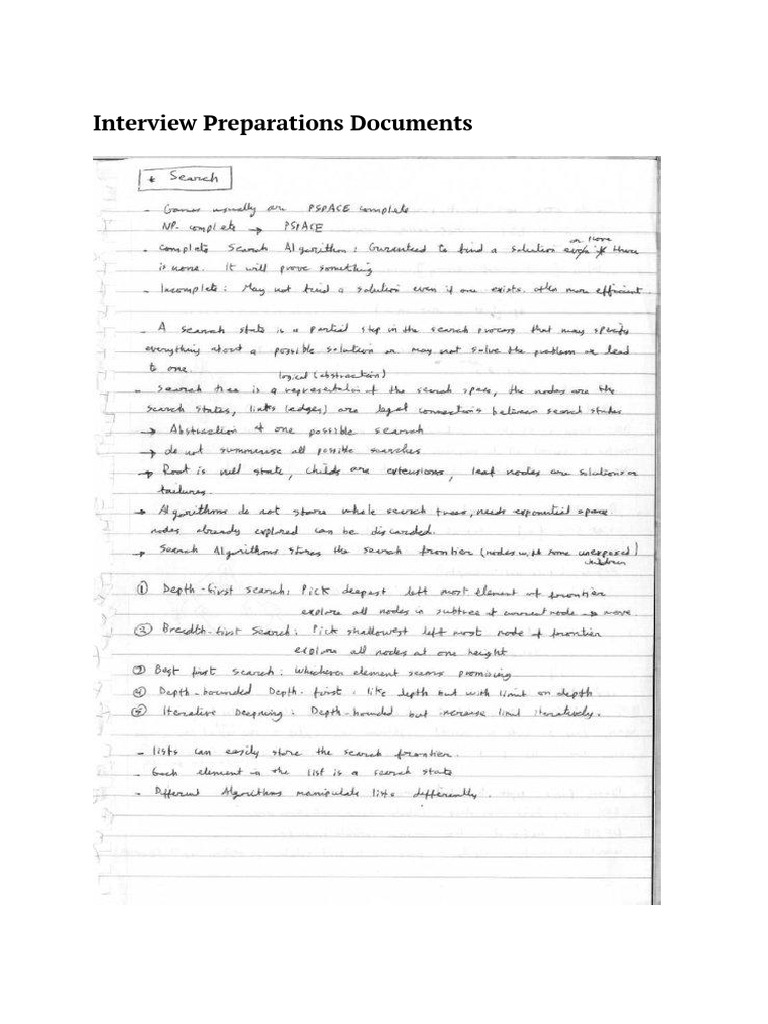 Interview Preparations Documents
* Search
- Games usually are PSPACE complete
NP-complete → PSPACE
- Complete Search Algorithm: Guranteed to find a solution if there
or prove
is none. It will prove something
- Incomplete: May not find a solution even if one exists. often more efficient
- A search state is a partial step in the search process that may specify
everything about a possible solution or may not solve the problem or lead
to one.
logical (abstraction)
- Search tree is a representation of the search space, the nodes are the
search states, links (edges) are legal connections between search states
→ Abstraction of one possible search
→ do not summerise all possible searches
→ Root is null state, childs are extensions, leaf nodes are solutions or
failures.
→ Algorithms do not store whole search trees, needs exponential space
nodes already explored can be discarded.
→ Search Algorithms stores the search frontier (nodes with some unexposed)
children
① Depth-first search: Pick deepest left most element of frontier
explore all nodes in subtree of current node → move
② Breadth-first Search: Pick shallowest left most node of frontier
explore all nodes at one height
③ Best first search: Whichever element seems promising
④ Depth-bounded Depth-first: like depth but with limit on depth
⑤ Iterative Deepning: Depth-bounded but increase limit iteratively.
- lists can easily store the search frontier.
- Each element in the list is a search state
- Different Algorithms manipulate lists differently.